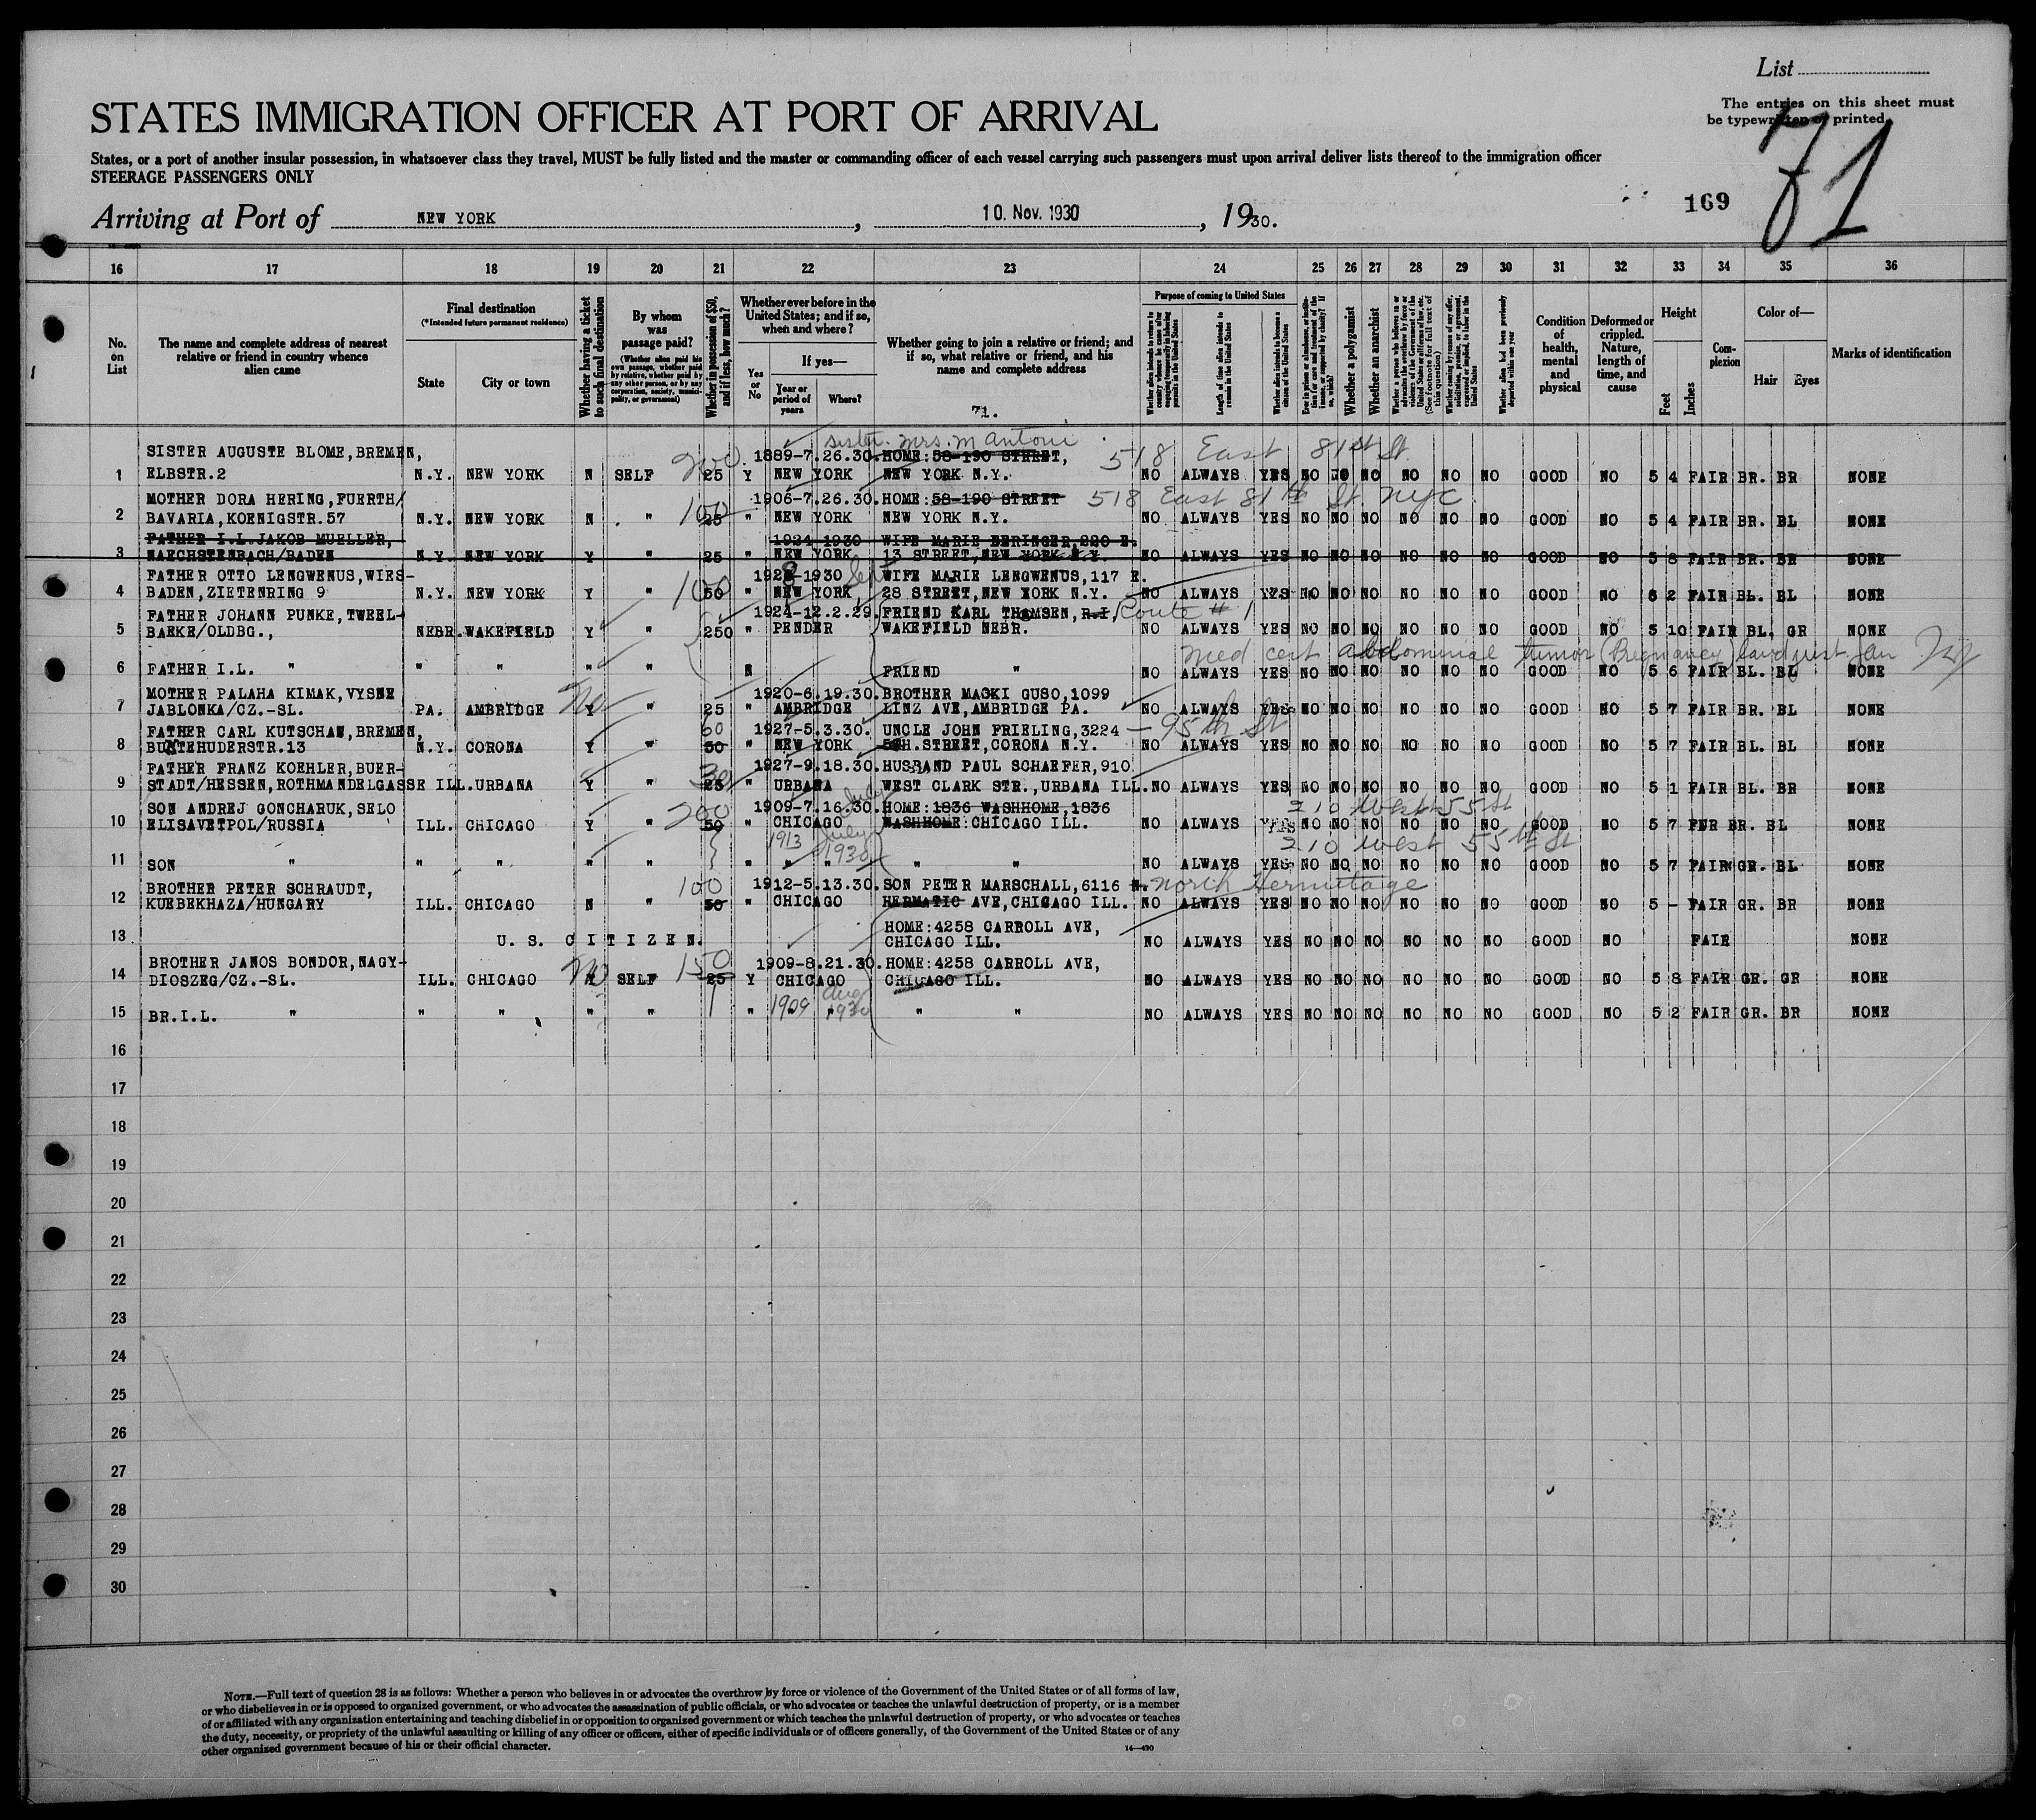 List
The entries on this sheet must
be typewritten or printed.
71
STATES IMMIGRATION OFFICER AT PORT OF ARRIVAL
States, or a port of another insular possession, in whatsoever class they travel, MUST be fully listed and the master or commanding officer of each vessel carrying such passengers must upon arrival deliver lists thereof to the immigration officer
STEERAGE PASSENGERS ONLY
169
Arriving at Port of NEW YORK, 10. Nov. 1930, 1930.
16 17 18 19 20 21 22 23 24 25 26 27 28 29 30 31 32 33 34 35 36
No. on List
The name and complete address of nearest relative or friend in country whence alien came
Final destination
(*Intended future permanent residence)
State
City or town
Whether having a ticket to such final destination
By whom was passage paid?
(Whether alien paid his own passage, whether paid by relative, whether paid by any other person, or by any corporation, society, municipality, or government)
Whether in possession of $50, and if less, how much?
Whether ever before in the United States; and if so, when and where?
Yes or No
If yes—
Year or period of years
Where?
Whether going to join a relative or friend; and if so, what relative or friend, and his name and complete address
71.
Purpose of coming to United States
Whether alien intends to return to country whence he came after engaging temporarily in laboring pursuits in the United States
Length of time alien intends to remain in the United States
Whether alien intends to become a citizen of the United States
Ever in prison or almshouse, or institution for care and treatment of the insane or supported by charity? If so, which?
Whether a polygamist
Whether an anarchist
Whether a person who believes in or advocates the overthrow by force or violence of the Government of the United States or all forms of law, etc. (See footnote for full text of this question)
Whether coming by reason of any offer, solicitation, promise, or agreement, expressed or implied, to labor in the United States
Whether alien had been previously deported within one year
Condition of health, mental and physical
Deformed or crippled. Nature, length of time, and cause
Height
Feet
Inches
Complexion
Color of—
Hair
Eyes
Marks of identification
sister. Mrs. M Antoni 518 East 81st St.
SISTER AUGUSTE BLOME, BREMEN, 200 1889-7.26.30. HOME: 58-190 STREET,
1 ELBSTR.2 N.Y. NEW YORK N SELF 25 Y NEW YORK NEW YORK N.Y. NO ALWAYS YES NO NO NO NO NO NO GOOD NO 5 4 FAIR BR. BR NONE
MOTHER DORA HERING, FUERTH/ 100 1906-7.26.30. HOME: 58-190 STREET 518 East 81th St. nyc
2 BAVARIA, KOENIGSTR.57 N.Y. NEW YORK N " 25 " NEW YORK NEW YORK N.Y. NO ALWAYS YES NO NO NO NO NO NO GOOD NO 5 4 FAIR BR. BL NONE
FATHER I.L. JAKOB MUELLER, 1924-1930 WIFE MARIE BERINGER, 220 E.
3 N.Y. NEW YORK Y " 25 " NEW YORK 13 STREET, NEW YORK N.Y. NO ALWAYS YES NO NO NO NO NO NO GOOD NO 5 8 FAIR BR. BR NONE
FATHER OTTO LENGWENUS, WIES- 100 1928-1930 Sep WIFE MARIE LENGWENUS, 117 E.
4 BADEN, ZIETENRING 9 N.Y. NEW YORK Y " 50 " NEW YORK 28 STREET, NEW YORK N.Y. NO ALWAYS YES NO NO NO NO NO NO GOOD NO 6 2 FAIR BL. BL NONE
FATHER JOHANN PUNKE, TWEEL- 1924-12.2.29. FRIEND KARL THOMSEN, R.I, Route # 1
5 BAEKE/OLDBG., NEBR. WAKEFIELD Y " 250 " PENDER WAKEFIELD NEBR. NO ALWAYS YES NO NO NO NO NO NO GOOD NO 5 10 FAIR BL. GR NONE
med cert abdominal tumor (Pregnancy)
6 FATHER I.L. " " " " " N FRIEND " NO ALWAYS YES NO NO NO NO NO NO GOOD NO 5 6 FAIR BL. BL NONE
MOTHER PALAHA KIMAK, VYSNE No 1920-6.19.30. BROTHER MASKI GUSO, 1099
7 JABLONKA/CZ.-SL. PA. AMBRIDGE Y " 25 " AMBRIDGE LINZ AVE, AMBRIDGE PA. NO ALWAYS YES NO NO NO NO NO NO GOOD NO 5 7 FAIR BR. BL NONE
FATHER CARL KUTSCHAN, BREMEN, 60 1927-5.3.30. UNCLE JOHN FRIELING, 3224 — 95th St
8 BUXTEHUDERSTR.13 N.Y. CORONA Y " 50 " NEW YORK STREET, CORONA N.Y. NO ALWAYS YES NO NO NO NO NO NO GOOD NO 5 7 FAIR BL. BL NONE
FATHER FRANZ KOEHLER, BUER- 30 1927-9.18.30. HUSBAND PAUL SCHAEFER, 910
9 STADT/HESSEN, ROTHMANDELGASSE ILL. URBANA Y " 25 " URBANA WEST CLARK STR., URBANA ILL. NO ALWAYS YES NO NO NO NO NO NO GOOD NO 5 1 FAIR BL. BR NONE
SON ANDREJ GONCHARUK, SELO 200 1909-7.16.30. July HOME: 1836 WASHHOME, 1836 210 West 55 St
10 ELISAVETPOL/RUSSIA ILL. CHICAGO Y " 50 " CHICAGO WASHHOME CHICAGO ILL. NO ALWAYS YES NO NO NO NO NO NO GOOD NO 5 7 FUR BR. BL NONE
1913 July 1930 210 West 55th St
11 SON " " " " " " " " " " NO ALWAYS YES NO NO NO NO NO NO GOOD NO 5 7 FAIR GR. BL NONE
BROTHER PETER SCHRAUDT, 100 1912-5.13.30. SON PETER MARSCHALL, 6116 N. North Hermitage
12 KUEBEKHAZA/HUNGARY ILL. CHICAGO N " 50 " CHICAGO HERMATIC AVE, CHICAGO ILL. NO ALWAYS YES NO NO NO NO NO NO GOOD NO 5 - FAIR GR. BR NONE
HOME: 4258 CARROLL AVE,
13 U. S. CITIZEN. CHICAGO ILL. NO ALWAYS YES NO NO NO NO NO NO GOOD NO FAIR NONE
BROTHER JANOS BONDOR, NAGY- No 150 1909-8.21.30. HOME: 4258 CARROLL AVE,
14 DIOSZEG/CZ.-SL. ILL. CHICAGO SELF 25 Y CHICAGO CHICAGO ILL. NO ALWAYS YES NO NO NO NO NO NO GOOD NO 5 8 FAIR GR. GR NONE
1909 Aug 1930
15 BR.I.L. " " " " " " " " " NO ALWAYS YES NO NO NO NO NO NO GOOD NO 5 2 FAIR GR. BR NONE
16
17
18
19
20
21
22
23
24
25
26
27
28
29
30
NOTE.—Full text of question 28 is as follows: Whether a person who believes in or advocates the overthrow by force or violence of the Government of the United States or of all forms of law,
or who disbelieves in or is opposed to organized government, or who advocates the assassination of public officials, or who advocates or teaches the unlawful destruction of property, or is a member
of or affiliated with any organization entertaining and teaching disbelief in or opposition to organized government or which teaches the unlawful destruction of property, or who advocates or teaches
the duty, necessity, or propriety of the unlawful assaulting or killing of any officer or officers, either of specific individuals or of officers generally, of the Government of the United States or of any
other organized government because of his or their official character.
14—430